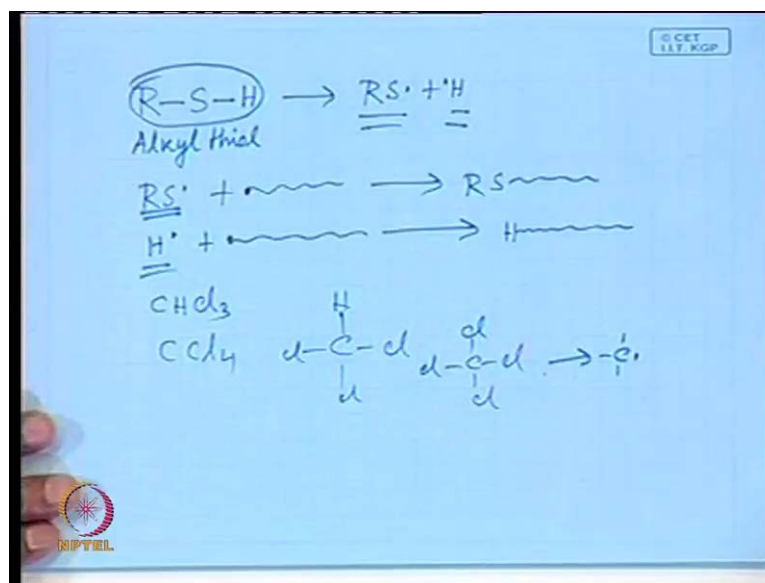 © CET
I.I.T. KGP
R–S–H ⟶ RS· + ·H
Alkyl thiol
RS· + ·~~~~ ⟶ RS~~~~
H· + ·~~~~ ⟶ H~~~~
CHCl3
H
CCl4 Cl–C–Cl Cl
Cl–C–Cl ⟶ –C·
Cl Cl
NPTEL